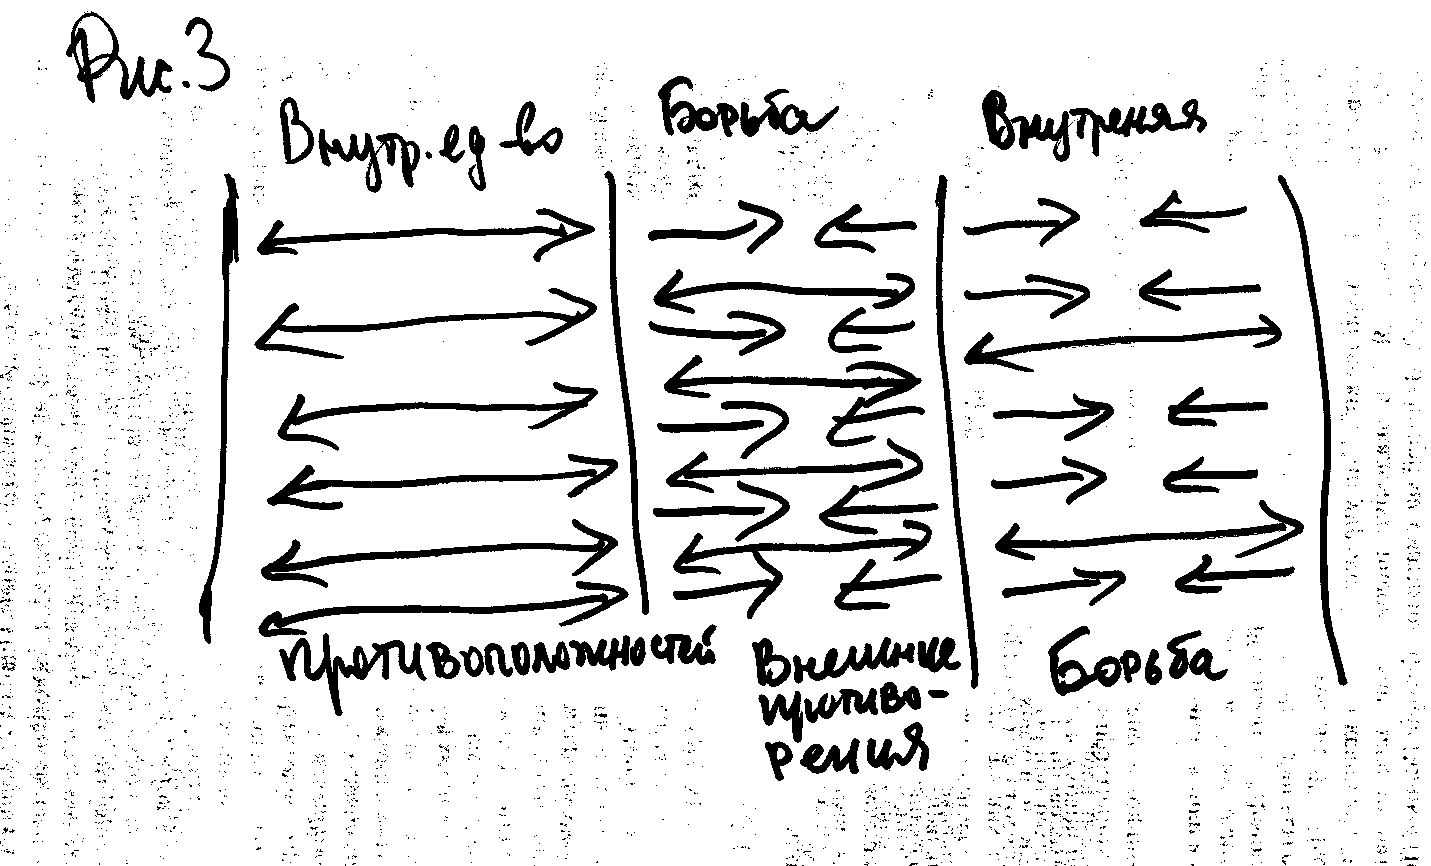 Рис. 3
Внутр. ед-во
Борьба
Внутреняя
противоположностей
Внешние
противо-
речия
Борьба